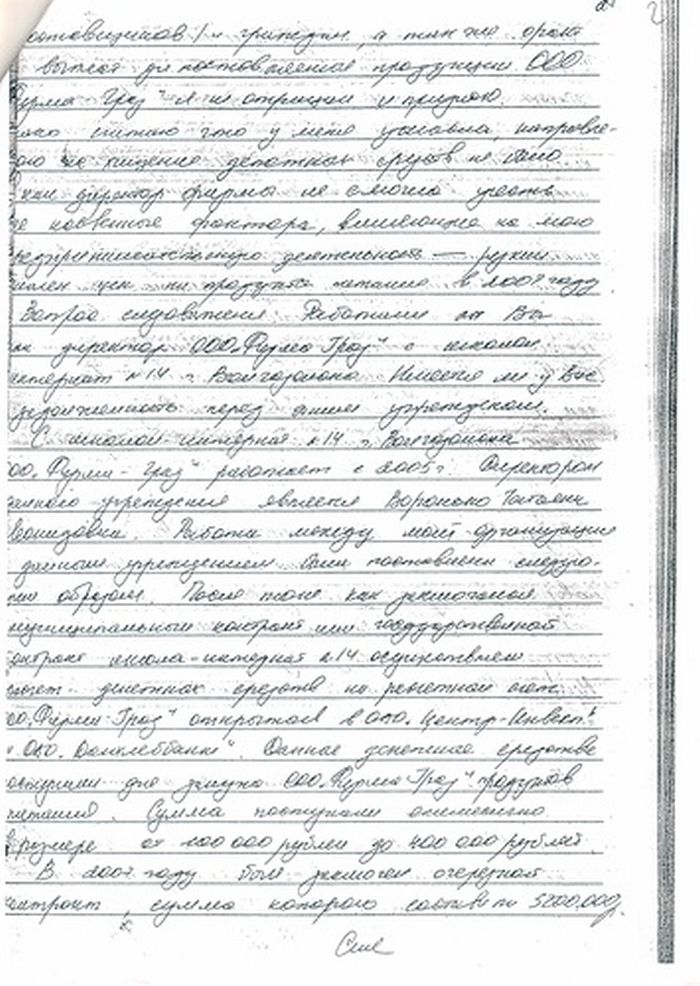 2
поставщиков и граждан, а так же факт
выплат за поставленные продукции ООО
Фирма Град" я не отрицаю и признаю.
считаю что у меня умысла, направле-
на хищение денежных средств не было.
как директор фирмы не смогла учесть
косвенные фактора, влияющие на мою
предпринимательскую деятельность — резкий
цен на продукты питания в 2007 году
Вопрос следователя: Работали ли Вы
как директор ООО „Фирма Град" с школой
интернат №14 г. Волгодонска Имеется ли у Вас
задолженность перед данным учреждением.
С школой-интернат №14 г. Волгодонска
ООО „Фирма-Град" работает с 2005 г. Директором
данного учреждения является Воронько Татьяна
Работа между моей организацией
данным учреждением были поставлены следую-
щим образом. После того как заключался
муниципальный контракт или государственный
контракт школа-интернат №14 осуществлял
денежных средств на расчетный счет
ООО „Фирма Град" открытый в ОАО „Центр-Инвест"
и ОАО „Донхлеббанк". Данные денежные средства
поступали для закупа ООО „Фирма Град" продуктов
питания. Сумма поступали ежемесячно
в размере от 200 000 рублей до 400 000 рублей.
В 2007 году был заключен очередной
контракт, сумма которого составила 5200.000р.